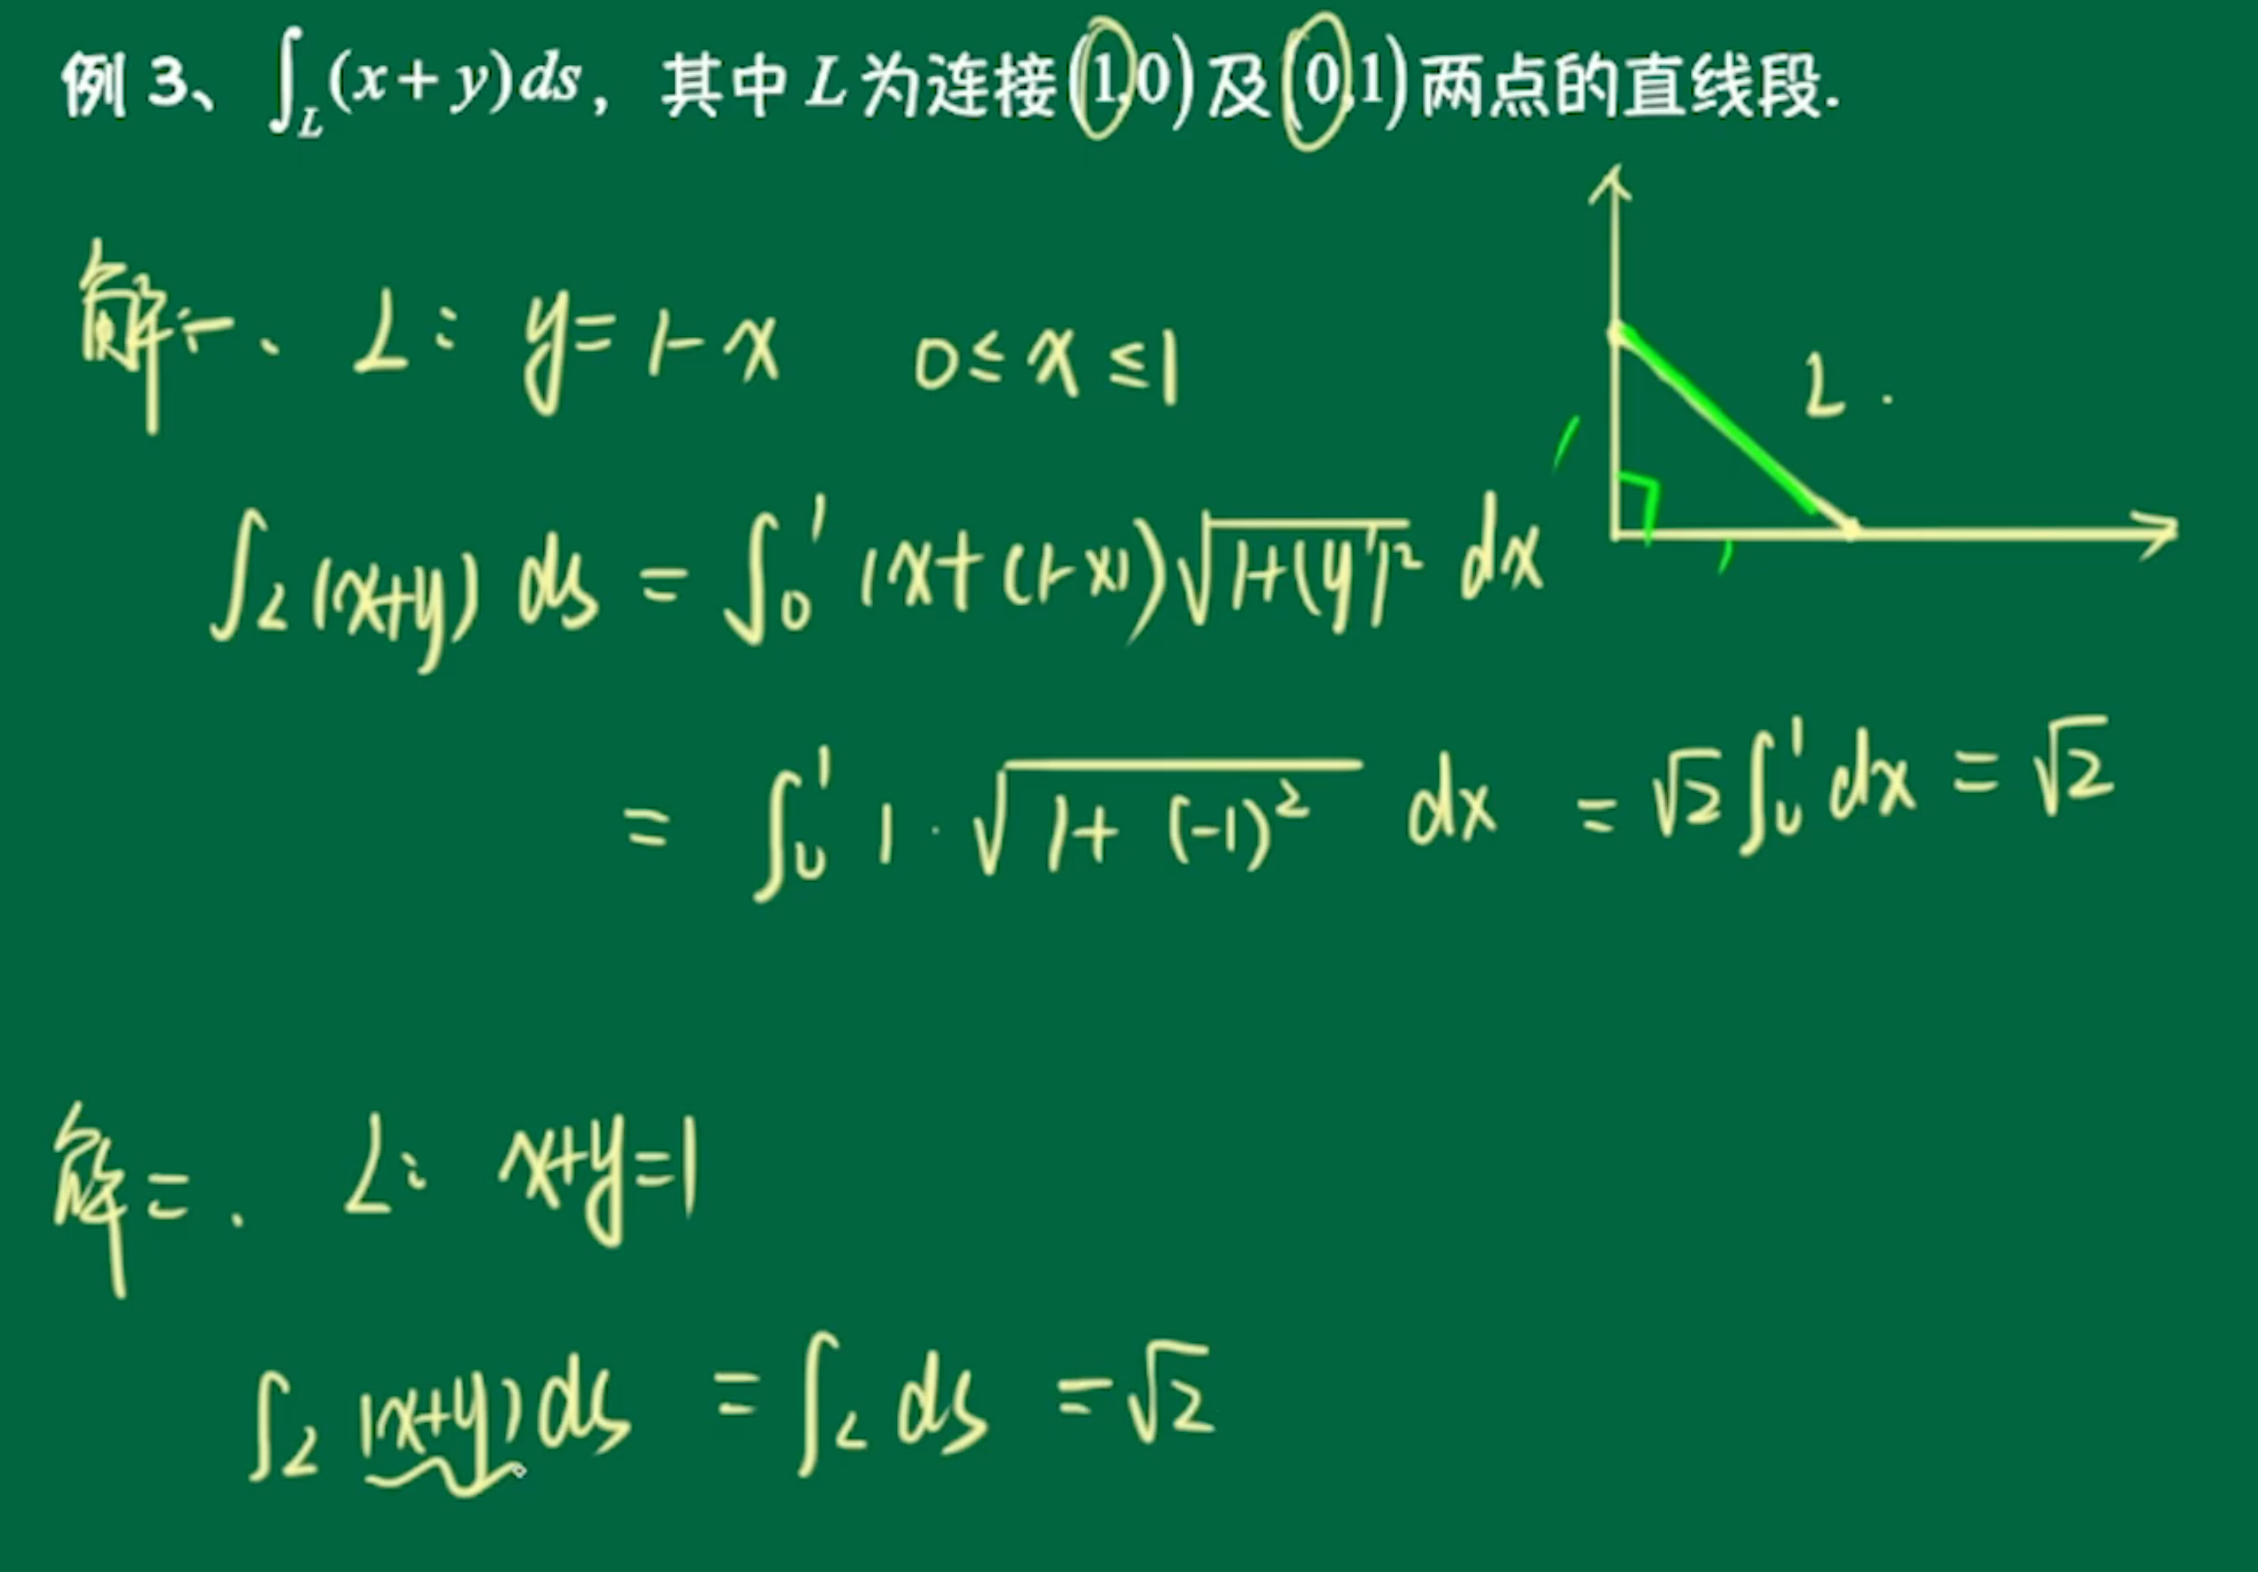 例 3、∫_L (x+y)ds，其中 L 为连接(1,0)及(0,1)两点的直线段.
解一、L: y=1-x 0≤x≤1
L.
1
1
∫_L (x+y) ds = ∫_0^1 (x+(1-x))√(1+(y')²) dx
= ∫_0^1 1·√(1+(-1)²) dx = √2 ∫_0^1 dx = √2
解二. L: x+y=1
∫_L (x+y) ds = ∫_L ds = √2